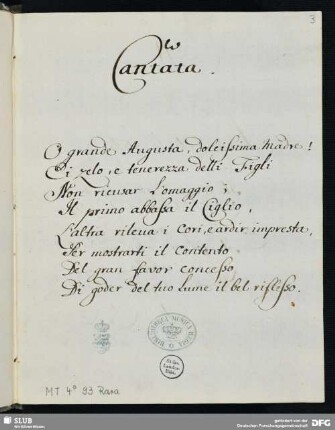 3
Cantata.
O grande Augusta, dolcissima Madre!
Di zelo, e tenerezza delli Figli
Non ricusar l'omaggio;
Il primo abbassa il Ciglio,
L'altra rileva i Cori, e ardir impresta,
Per mostrarti il Contento
Del gran favor concesso
Di goder del tuo Lume il bel riflesso.
MT 4° 93 Rara
SLUB
Wir führen Wissen.
gefördert von der
Deutschen Forschungsgemeinschaft
DFG